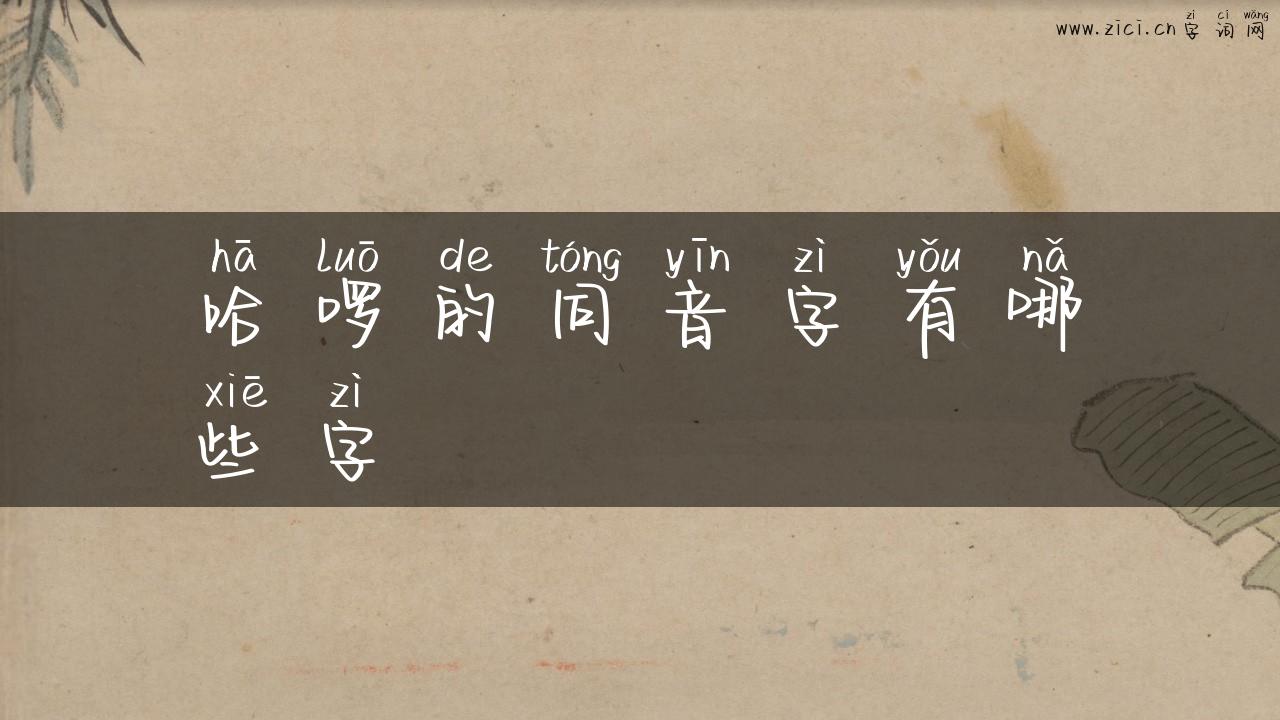 zì cí wǎng
www.zici.cn 字 词 网
hā luō de tóng yīn zì yǒu nǎ
哈 啰 的 同 音 字 有 哪
xiē zì
些 字